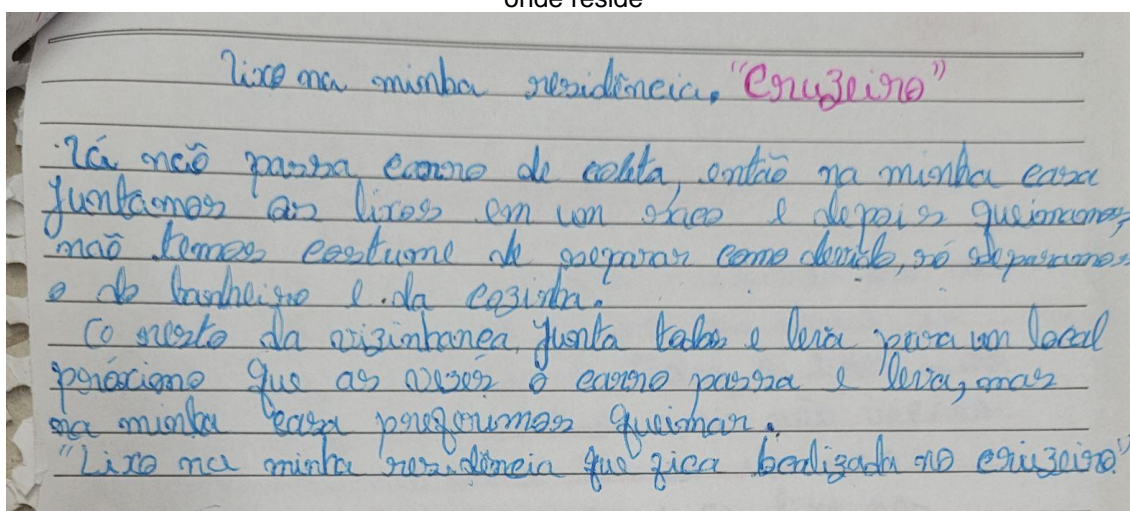 onde reside
Lixo na minha residência. "Cruzeiro"
Lá não passa carro de colita, então na minha casa
juntamos os lixos em um saco e depois queimamos,
não temos costume de separar como devido, só separamos
o do banheiro e da cozinha.
O resto da vizinhança, junta todos e leva para um local
próximo que as vezes o carro passa e leva, mas
na minha casa preferimos queimar.
"Lixo na minha residência que fica localizada no cruzeiro"